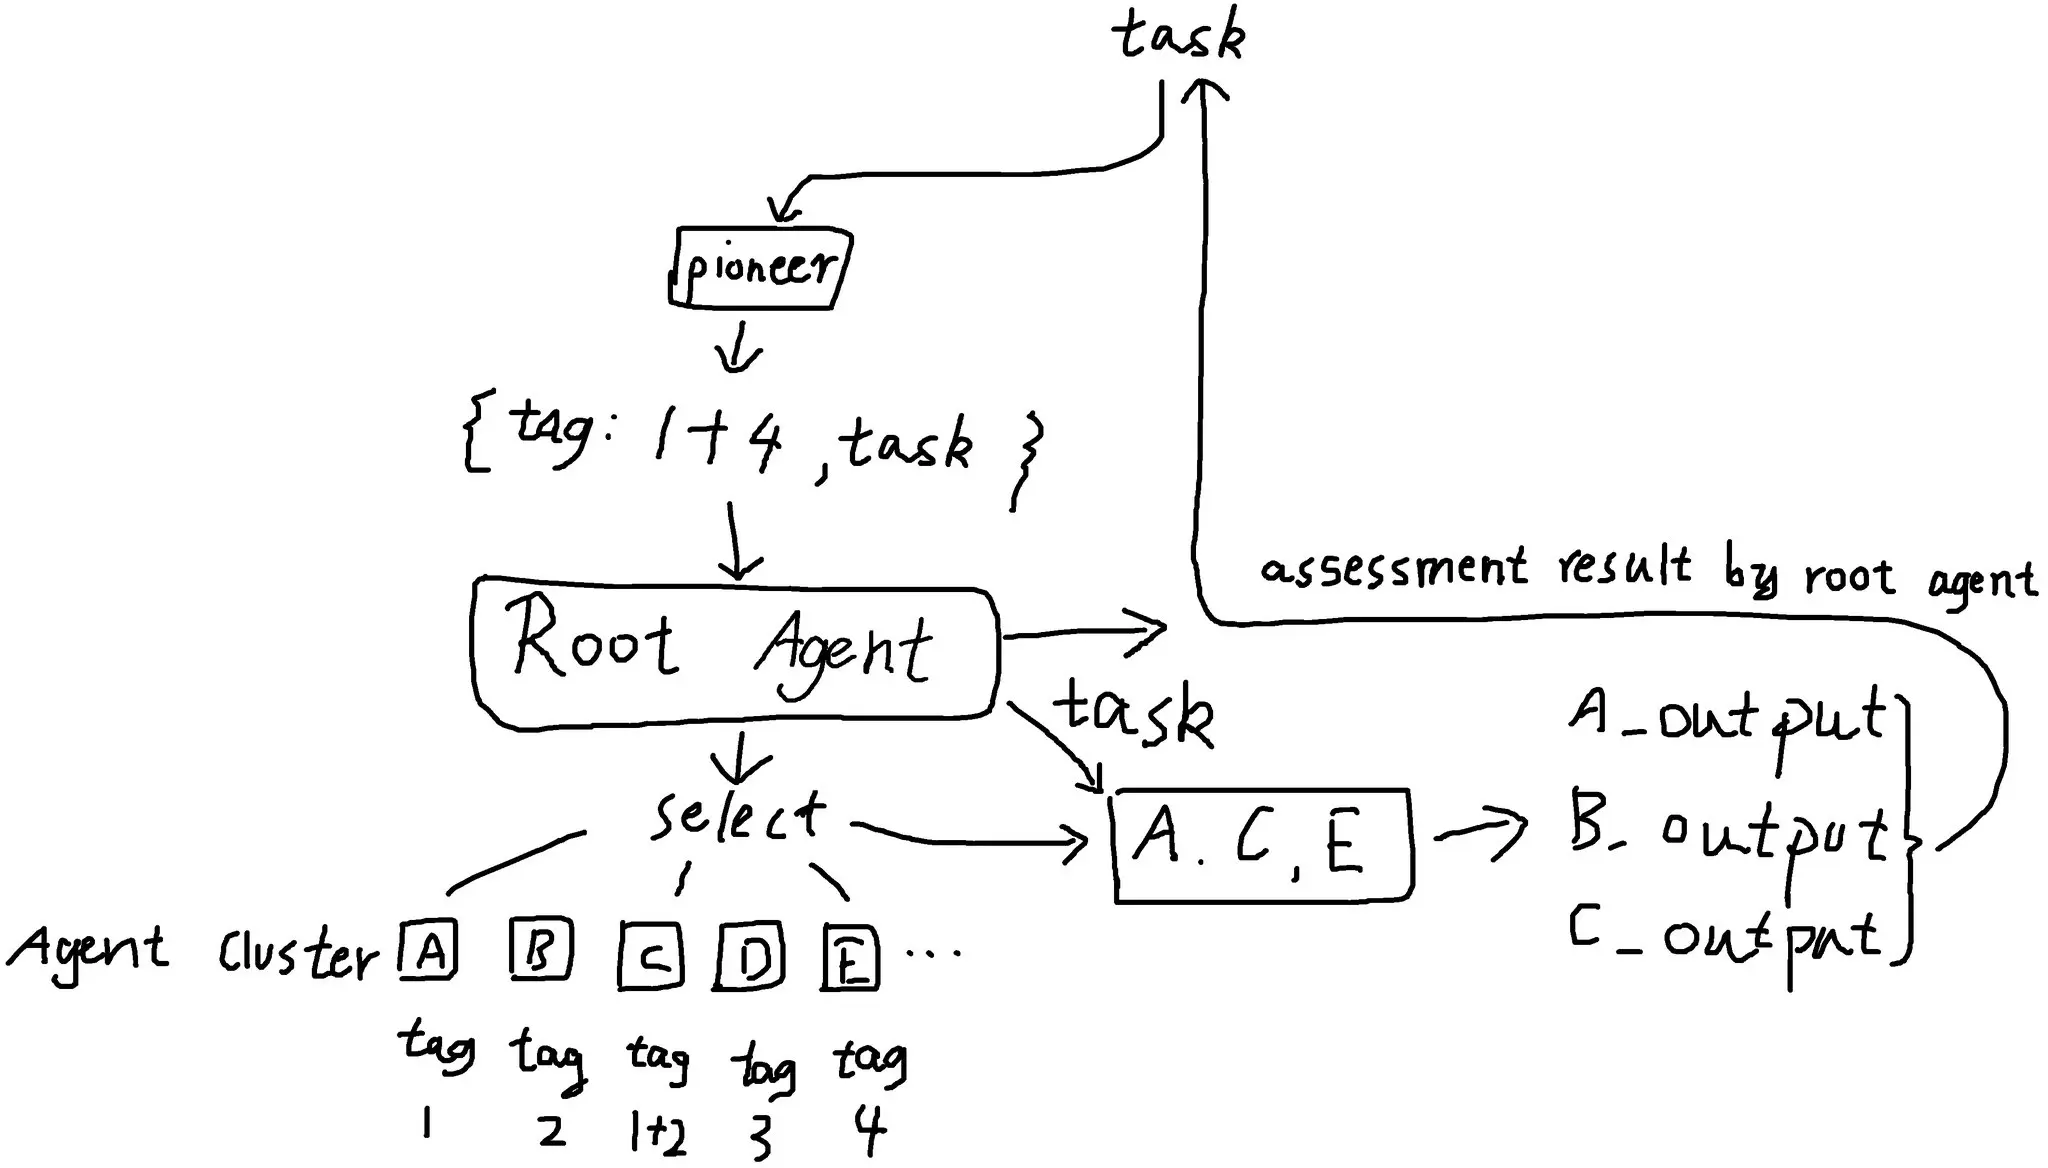 task
pioneer
{ tag: 1+4, task }
Root Agent
assessment result by root agent
task
select
A. C, E
A_output
B_output
C_output
Agent Cluster A B C D E ...
tag tag tag tag tag
1 2 1+2 3 4